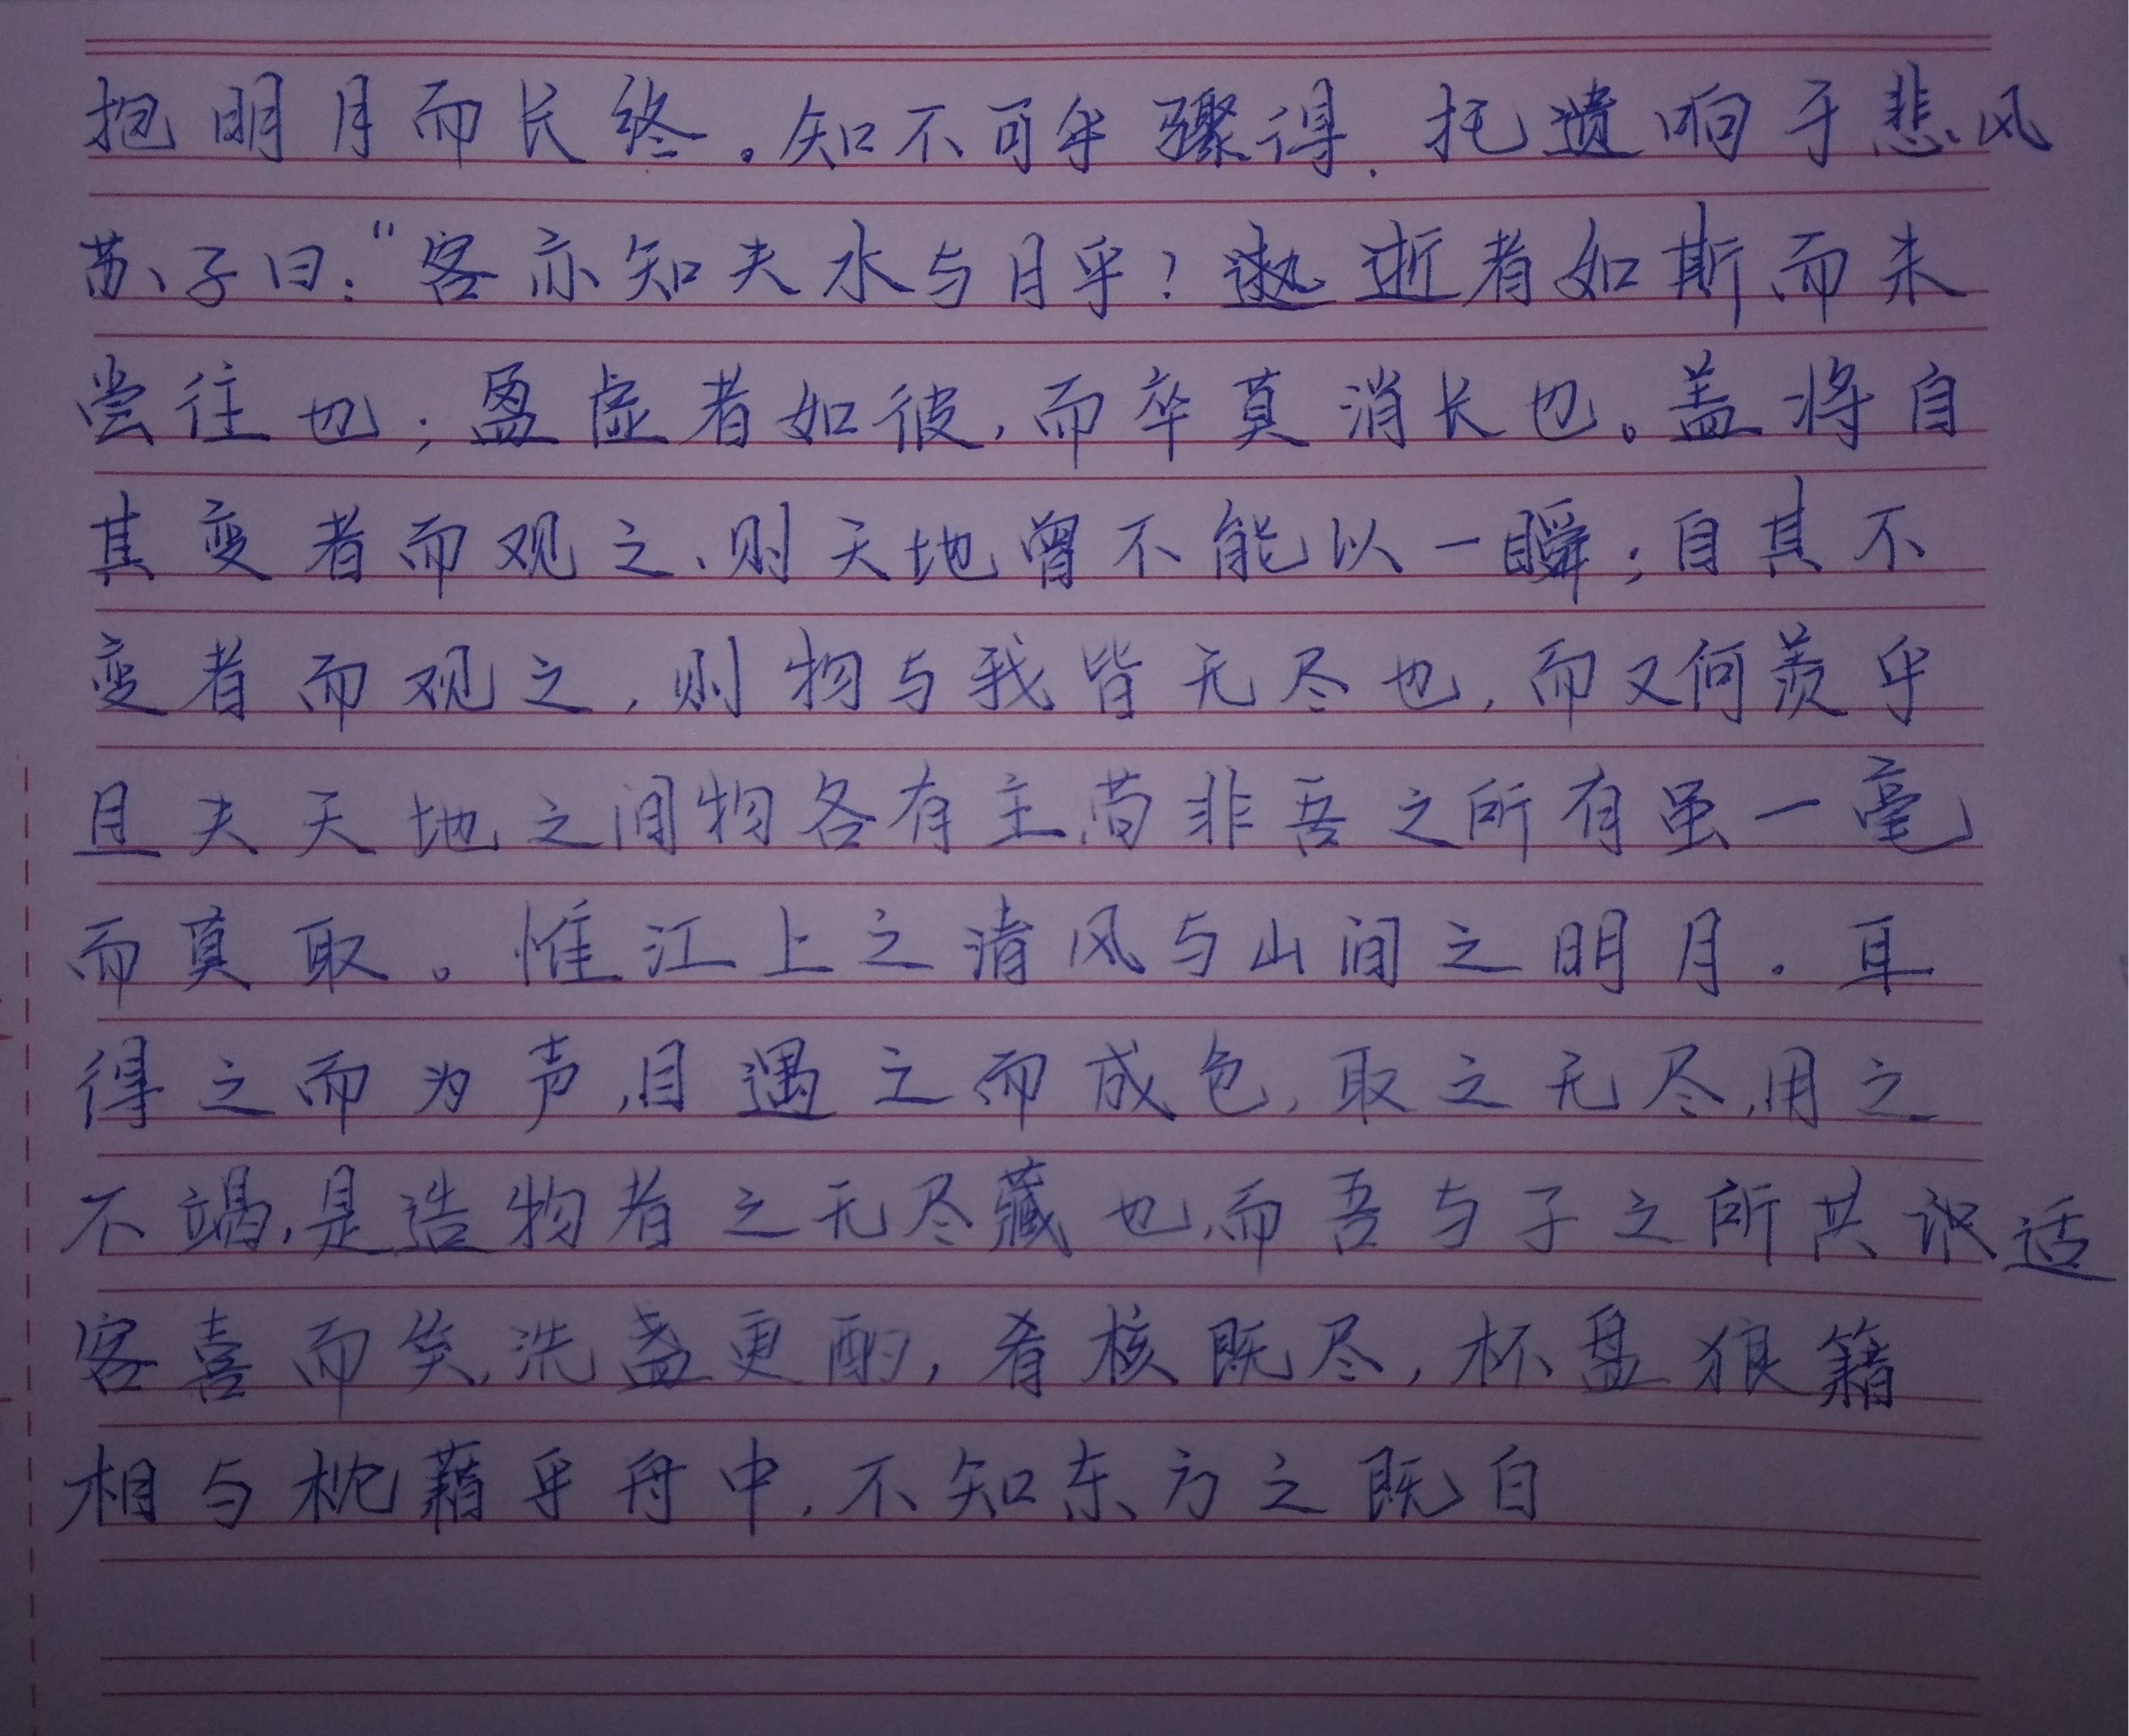 抱明月而长终。知不可乎骤得.托遗响于悲风
苏子曰:“客亦知夫水与月乎?逝者如斯而未
尝往也;盈虚者如彼,而卒莫消长也。盖将自
其变者而观之、则天地曾不能以一瞬;自其不
变者而观之,则物与我皆无尽也,而又何羡乎
且夫天地之间物各有主,苟非吾之所有虽一毫
而莫取。惟江上之清风与山间之明月.耳
得之而为声,目遇之而成色,取之无尽,用之
不竭,是造物者之无尽藏也,而吾与子之所共识适
客喜而笑,洗盏更酌,肴核既尽,杯盘狼籍
相与枕藉乎舟中,不知东方之既白